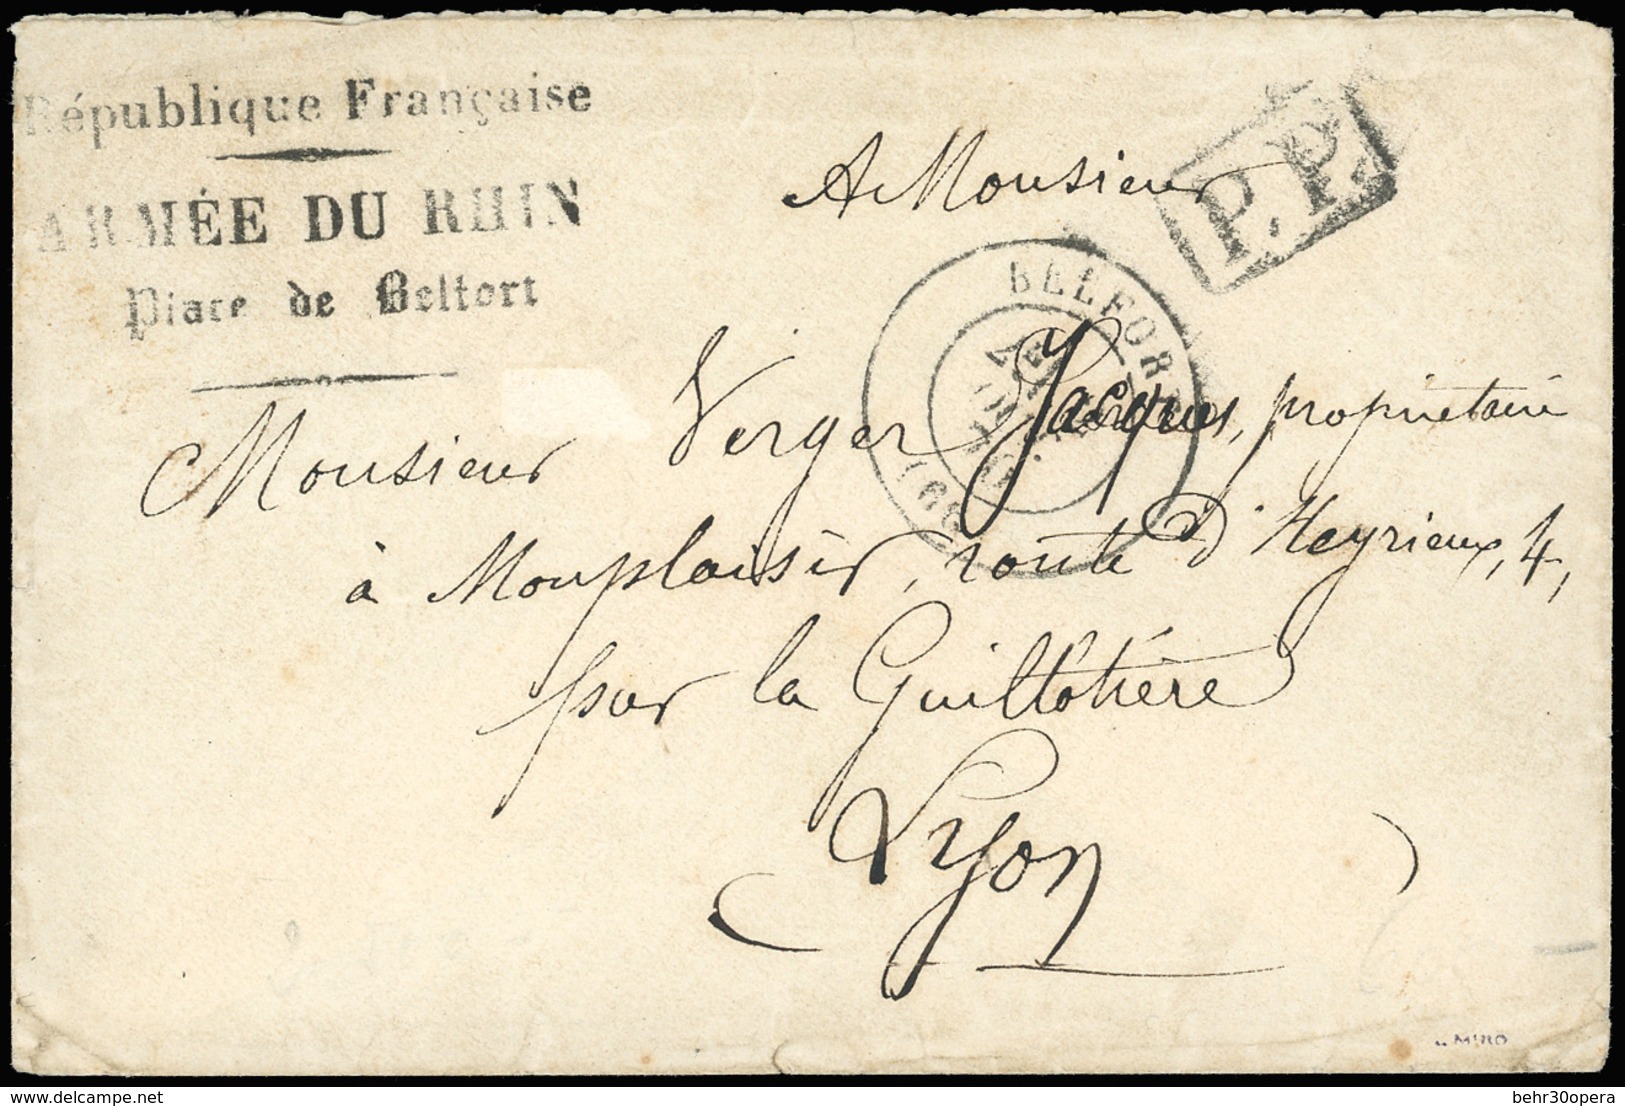 République Française
ARMÉE DU RHIN
Place de Belfort
P.P.
A Monsieur
BELFORT
(66)
Monsieur Verger Jacques, propriétaire
à Monplaisir, route d'Heyrieux, 4,
par la Guillotière
Lyon
MIRO
behr30opera